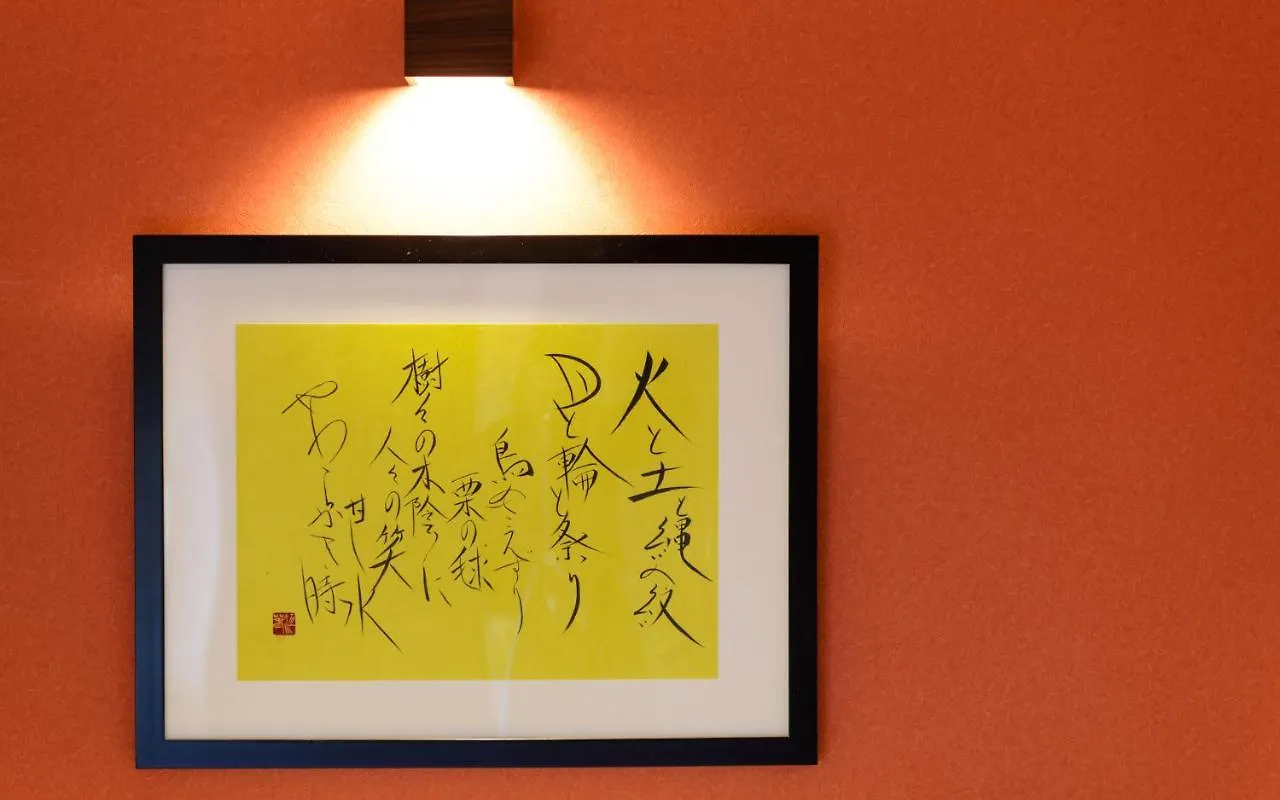 火と土と縄の紋
月と輪と祭り
鳥やさえずり
栗の毬
樹々の木陰に
人々の笑
甘し水
やわらかき時